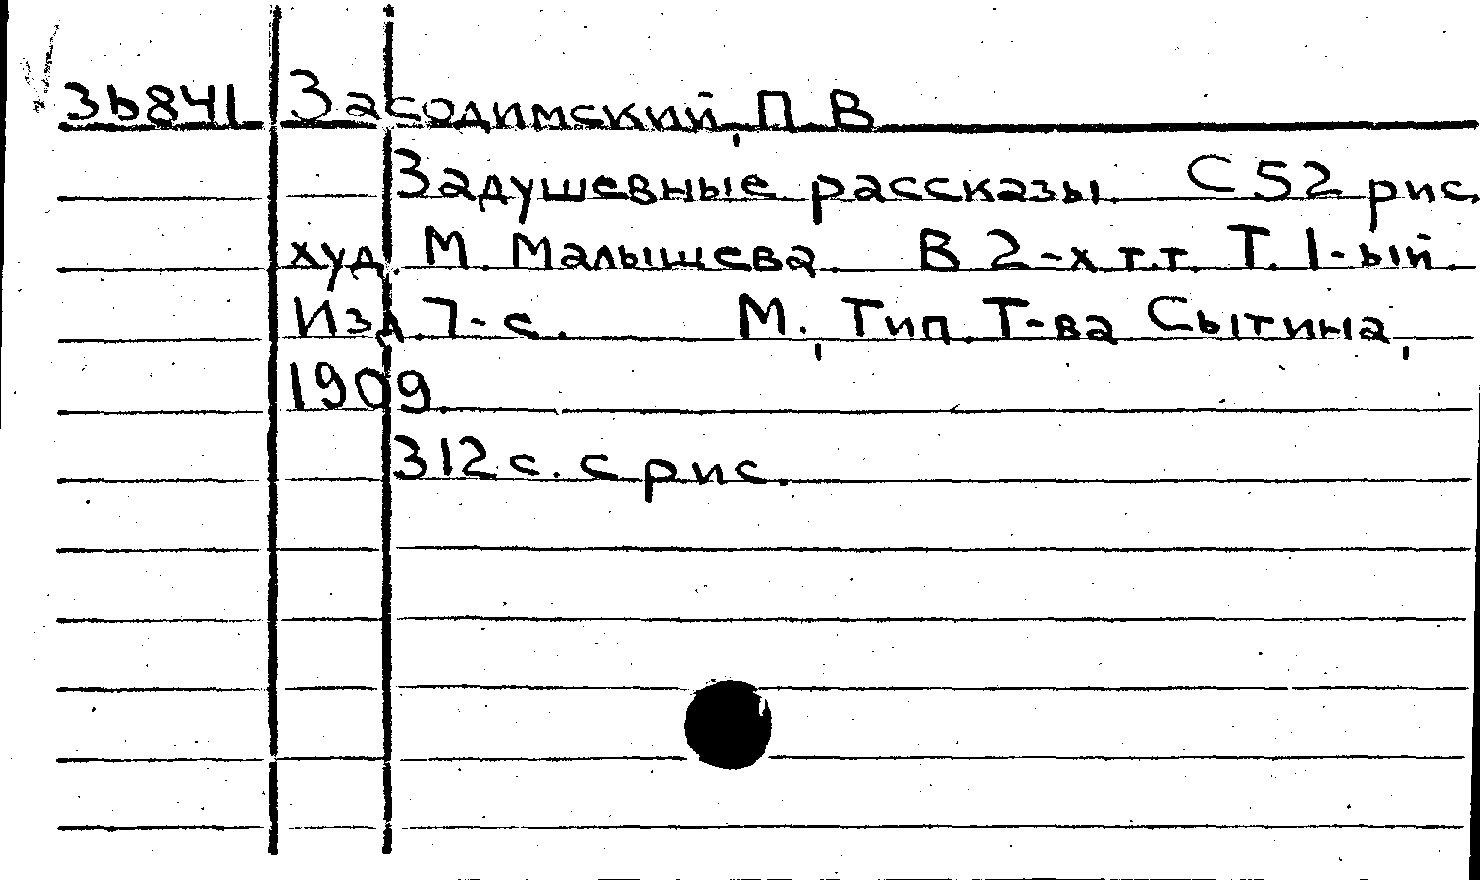 3b841 Засодимский, П. В
Задушевные рассказы. С 52 рис.
худ. М. Малышева. В 2-х т.т. Т. 1-ый.
Изд. 7-е. М., Тип. Т-ва Сытина,
1909.
312 с. с рис.